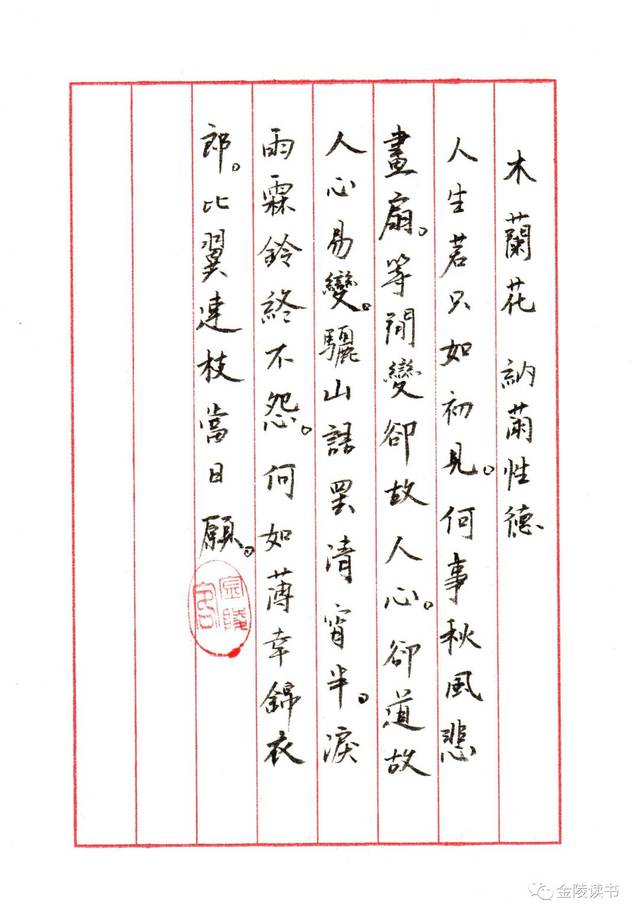 木蘭花　納蘭性德
人生若只如初見。何事秋風悲
畫扇。等閒變卻故人心。卻道故
人心易變。驪山語罢清宵半。淚
雨霖鈴終不怨。何如薄幸錦衣
郎。比翼連枝當日願。
金陵
客
金陵读书